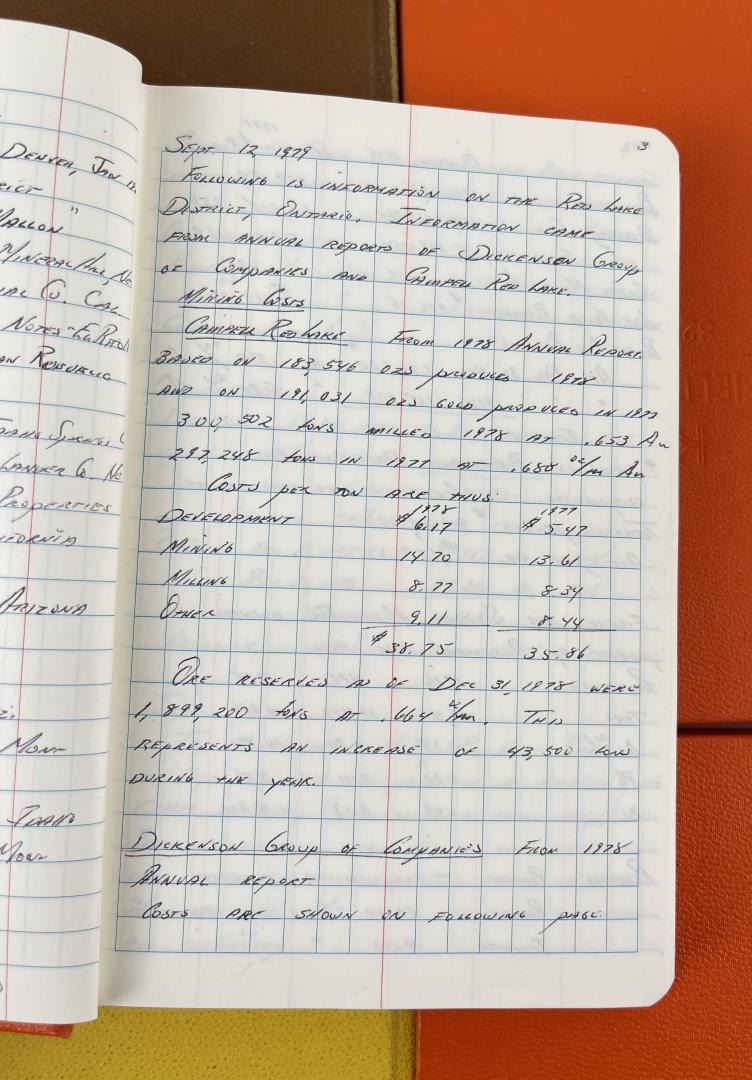 DENVER, JAN 12,
MALLON "
MINERAL HILL, NE
CO. CAL
NOTES-
LANDER CO. NE
PROPERTIES
ARIZONA
MONT
IDAHO
MONT
3
SEPT. 12, 1979
FOLLOWING IS INFORMATION ON THE RED LAKE
DISTRICT, ONTARIO. INFORMATION CAME
FROM ANNUAL REPORTS OF DICKENSON GROUP
OF COMPANIES AND CAMPELL RED LAKE.
MINING COSTS
CAMPELL RED LAKE FROM 1978 ANNUAL REPORT.
BASED ON 183,546 OZS PRODUCED 1978
AND ON 191,031 OZS GOLD PRODUCED IN 1977
300,502 TONS MILLED 1978 AT .653 Au
297,248 TONS IN 1977 AT .688 oz/TON Au
COSTS PER TON ARE THUS:
1978 1977
DEVELOPMENT $6.17 $5.47
MINING 14.70 13.61
MILLING 8.77 8.34
OTHER 9.11 8.44
$38.75 35.86
ORE RESERVES AS OF DEC 31, 1978 WERE
1,899,200 TONS AT .664 oz/TON. THIS
REPRESENTS AN INCREASE OF 43,500 TONS
DURING THE YEAR.
DICKENSON GROUP OF COMPANIES FROM 1978
ANNUAL REPORT.
COSTS ARE SHOWN ON FOLLOWING PAGE.